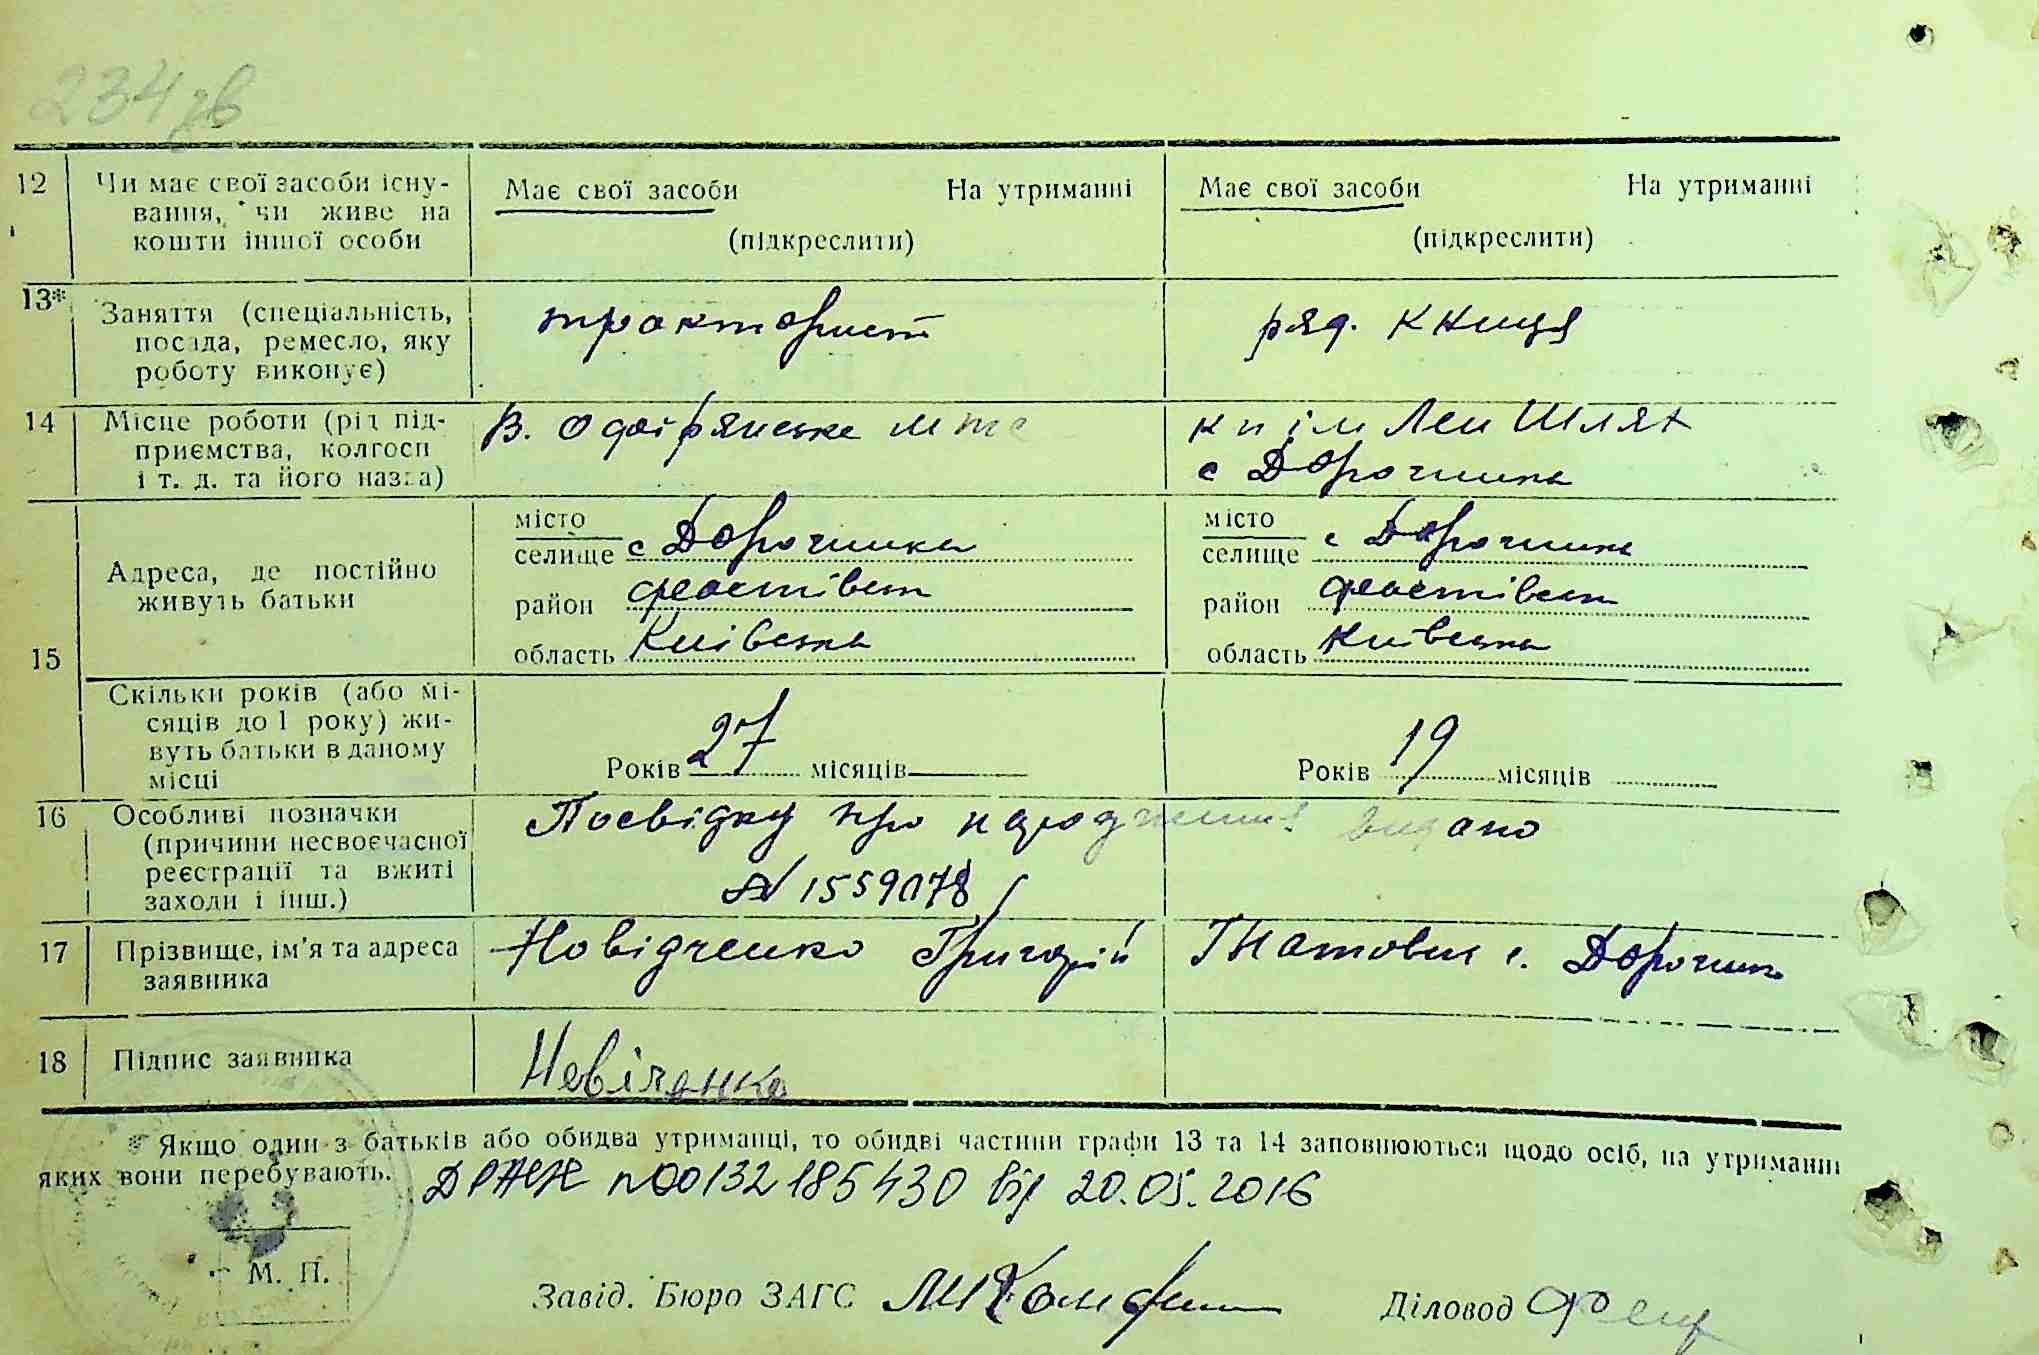 234 зв
12 Чи має свої засоби існу-
вання, чи живе на
кошти іншої особи
Має свої засоби На утриманні
(підкреслити)
Має свої засоби На утриманні
(підкреслити)
13* Заняття (спеціальність,
посада, ремесло, яку
роботу виконує)
тракторист
ряд. к книця
14 Місце роботи (рід під-
приємства, колгосп
і т. д. та його назва)
В. мтс
к п ім Лен Шлях
с Дорогинка
15 Адреса, де постійно
живуть батьки
місто
селище с Дорогинка
район Фастівськ
область Київська
місто
селище с Дорогинка
район Фастівськ
область Київська
Скільки років (або мі-
сяців до 1 року) жи-
вуть батьки в даному
місці
Років 27 місяців
Років 19 місяців
16 Особливі позначки
(причини несвоєчасної
реєстрації та вжиті
заходи і інш.)
Посвідку про народження видано
№ 1559078
17 Прізвище, ім'я та адреса
заявника
Новідченко Григорій Гнатович с. Дорогинк
18 Підпис заявника
Невіченко
* Якщо один з батьків або обидва утриманці, то обидві частини графи 13 та 14 заповнюються щодо осіб, на утриманні
яких вони перебувають.
ДРАЦС №00132185430 від 20.05.2016
М. П.
Завід. Бюро ЗАГС
Діловод